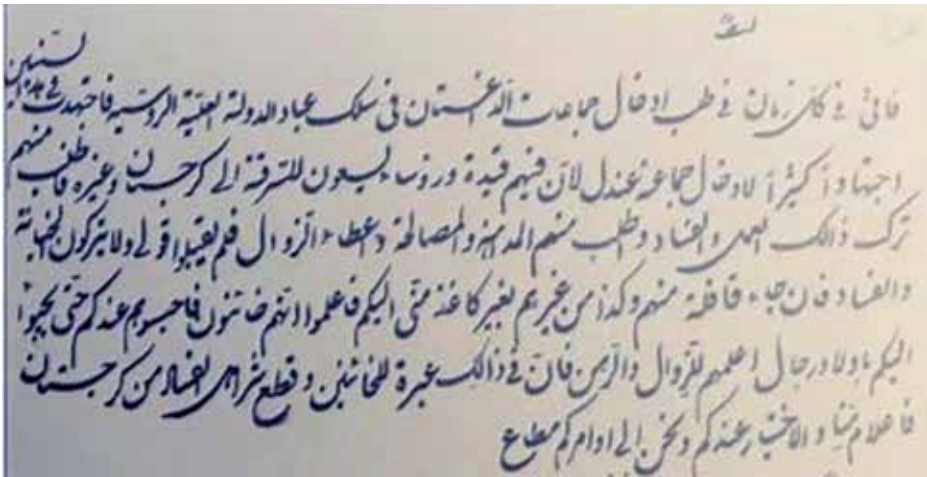 فانى فى كل زمان فى طلب ادخال جماعات الدغستان فى سلك عباد الدولة العلية الروسيه فاجتهدت فى هذين السنين
اجتهادا كثيرا لادخال جماعة عندل لان فيهم قيدة ورؤساء يسعون للسرقة الى كرجستان وغيره فاطلب منهم
ترك ذالك العمل والفساد وطلب منهم المداهنة والمصالحة واعطاء الزوال فلم يقبلوا قولى ولا يتركون الخيانة
والفساد فان جاء قافلة منهم وكذا من غيرهم بغير كاغذ منى اليكم فاعلموا انهم خائنون فاحبسوهم عندكم حتى يجيؤا
اليكم باولاد رجال اعلمهم للزوال والرهن فان فى ذالك عبرة للخائنين وقطع شر اهل الفساد من كرجستان
فاعلام منا والاختيار عندكم ونحن الى اوامركم مطاع